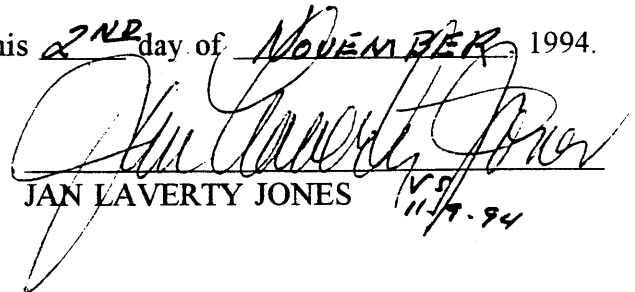 his 2ND day of NOVEMBER, 1994.
Jan Laverty Jones
JAN LAVERTY JONES
11-9-94